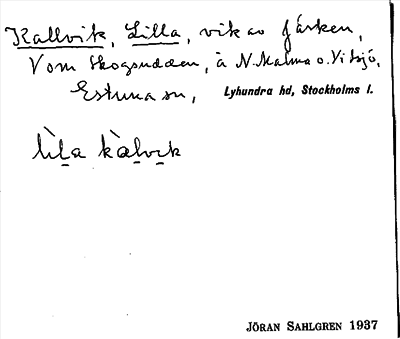 Kallvik, Lilla, vik av Järken,
V om Skogsudden, å N. Malma o. Vi Ssjö,
Estuna sn, Lyhundra hd, Stockholms l.
lìla kàlvik
JÖRAN SAHLGREN 1937